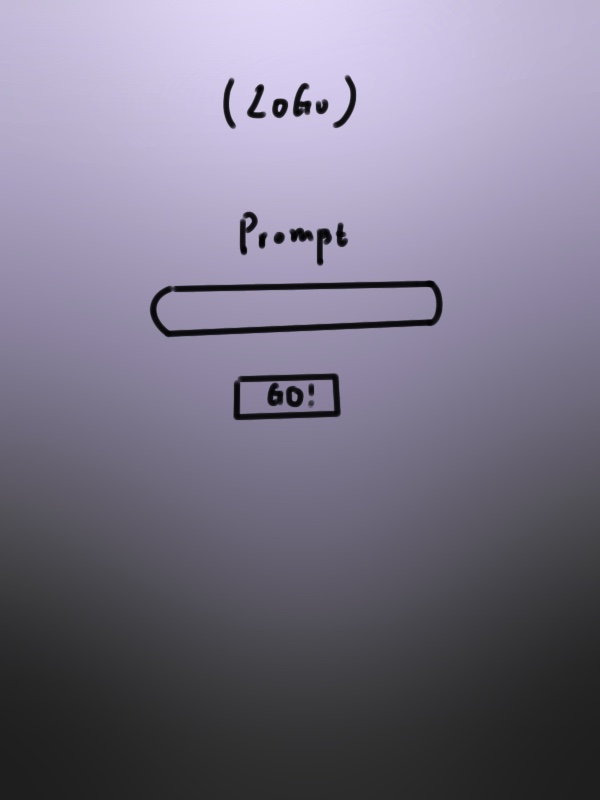 (LOGO)
Prompt
GO!